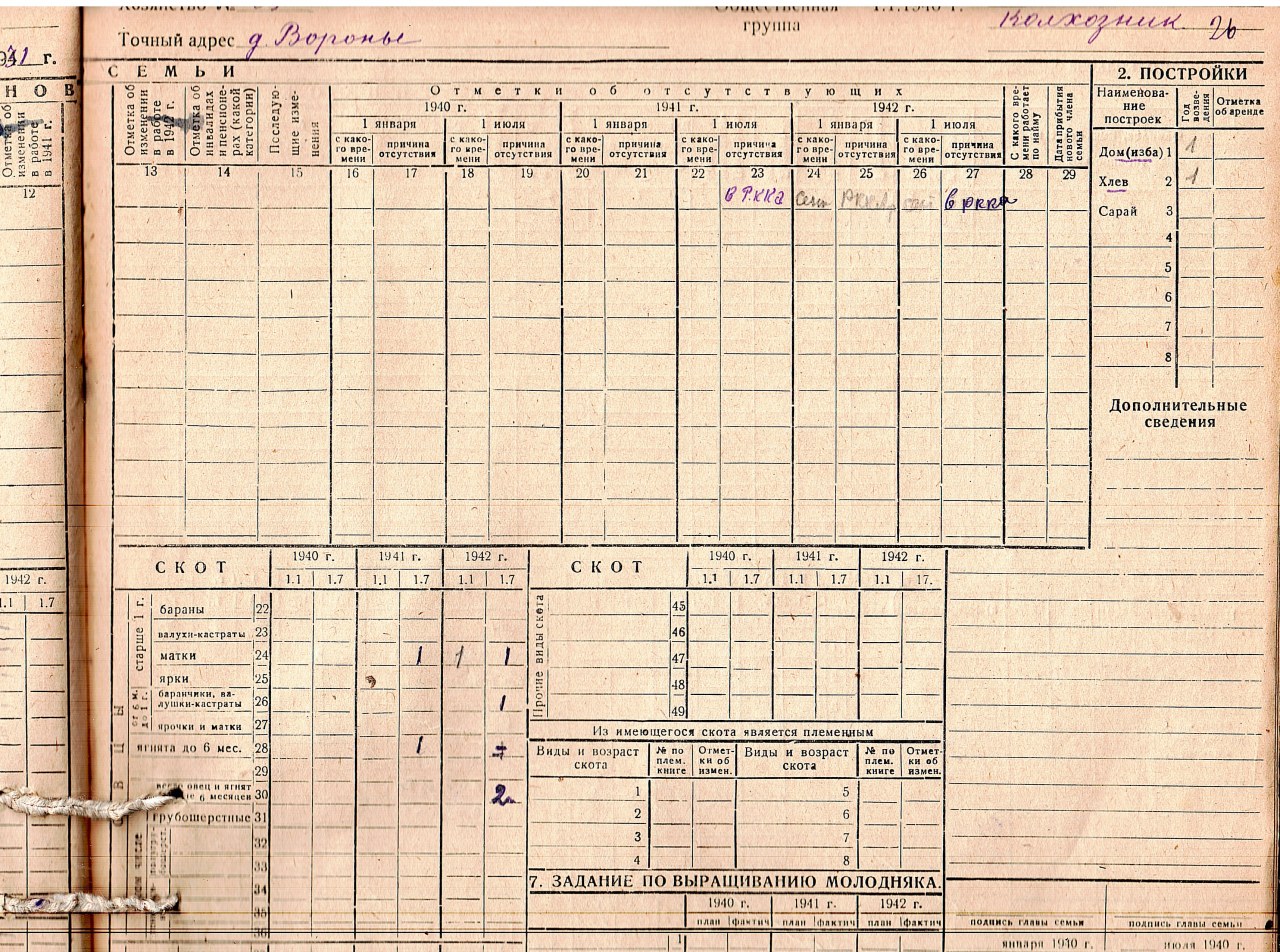 Общественная 1.1.1940 г.
группа
колхозник 26
Точный адрес д Воронье
31 г.
СЕМЬИ
НОВ
Отметка об изменении в работе в 1941 г.
12
Отметка об изменении в работе в 1942 г.
Отметка об инвалидах и пенсионерах (какой категории)
Последующие изменения
Отметки об отсутствующих
1940 г. 1941 г. 1942 г.
1 января 1 июля 1 января 1 июля 1 января 1 июля
с како-го вре-мени причина отсутствия с како-го вре-мени причина отсутствия с како-го вре-мени причина отсутствия с како-го вре-мени причина отсутствия с како-го вре-мени причина отсутствия с како-го вре-мени причина отсутствия
С какого вре-мени работает по найму
Дата прибытия нового члена семьи
13 14 15 16 17 18 19 20 21 22 23 24 25 26 27 28 29
в РККА в РККА
2. ПОСТРОЙКИ
Наименова-ние построек Год возве-дения Отметка об аренде
Дом(изба) 1 1
Хлев 2 1
Сарай 3
4
5
6
7
8
Дополнительные
сведения
1942 г.
1.1 1.7
СКОТ 1940 г. 1941 г. 1942 г.
1.1 1.7 1.1 1.7 1.1 1.7
старше 1 г.
бараны 22
валухи-кастраты 23
матки 24 1 1 1
ярки 25
от 6 м. до 1 г.
баранчики, ва-лушки-кастраты 26 1
ярочки и матки 27
ягнята до 6 мес. 28 1
29
30 2
грубошерстные 31
32
33
34
35
36
СКОТ 1940 г. 1941 г. 1942 г.
1.1 1.7 1.1 1.7 1.1 17.
Прочие виды скота
45
46
47
48
49
Из имеющегося скота является племенным
Виды и возраст скота № по плем. книге Отмет-ки об измен. Виды и возраст скота № по плем. книге Отмет-ки об измен.
1 5
2 6
3 7
4 8
7. ЗАДАНИЕ ПО ВЫРАЩИВАНИЮ МОЛОДНЯКА.
1940 г. 1941 г. 1942 г.
план фактич план фактич план фактич
1
подпись главы семьи подпись главы семьи
января 1940 г. июля 1940 г.